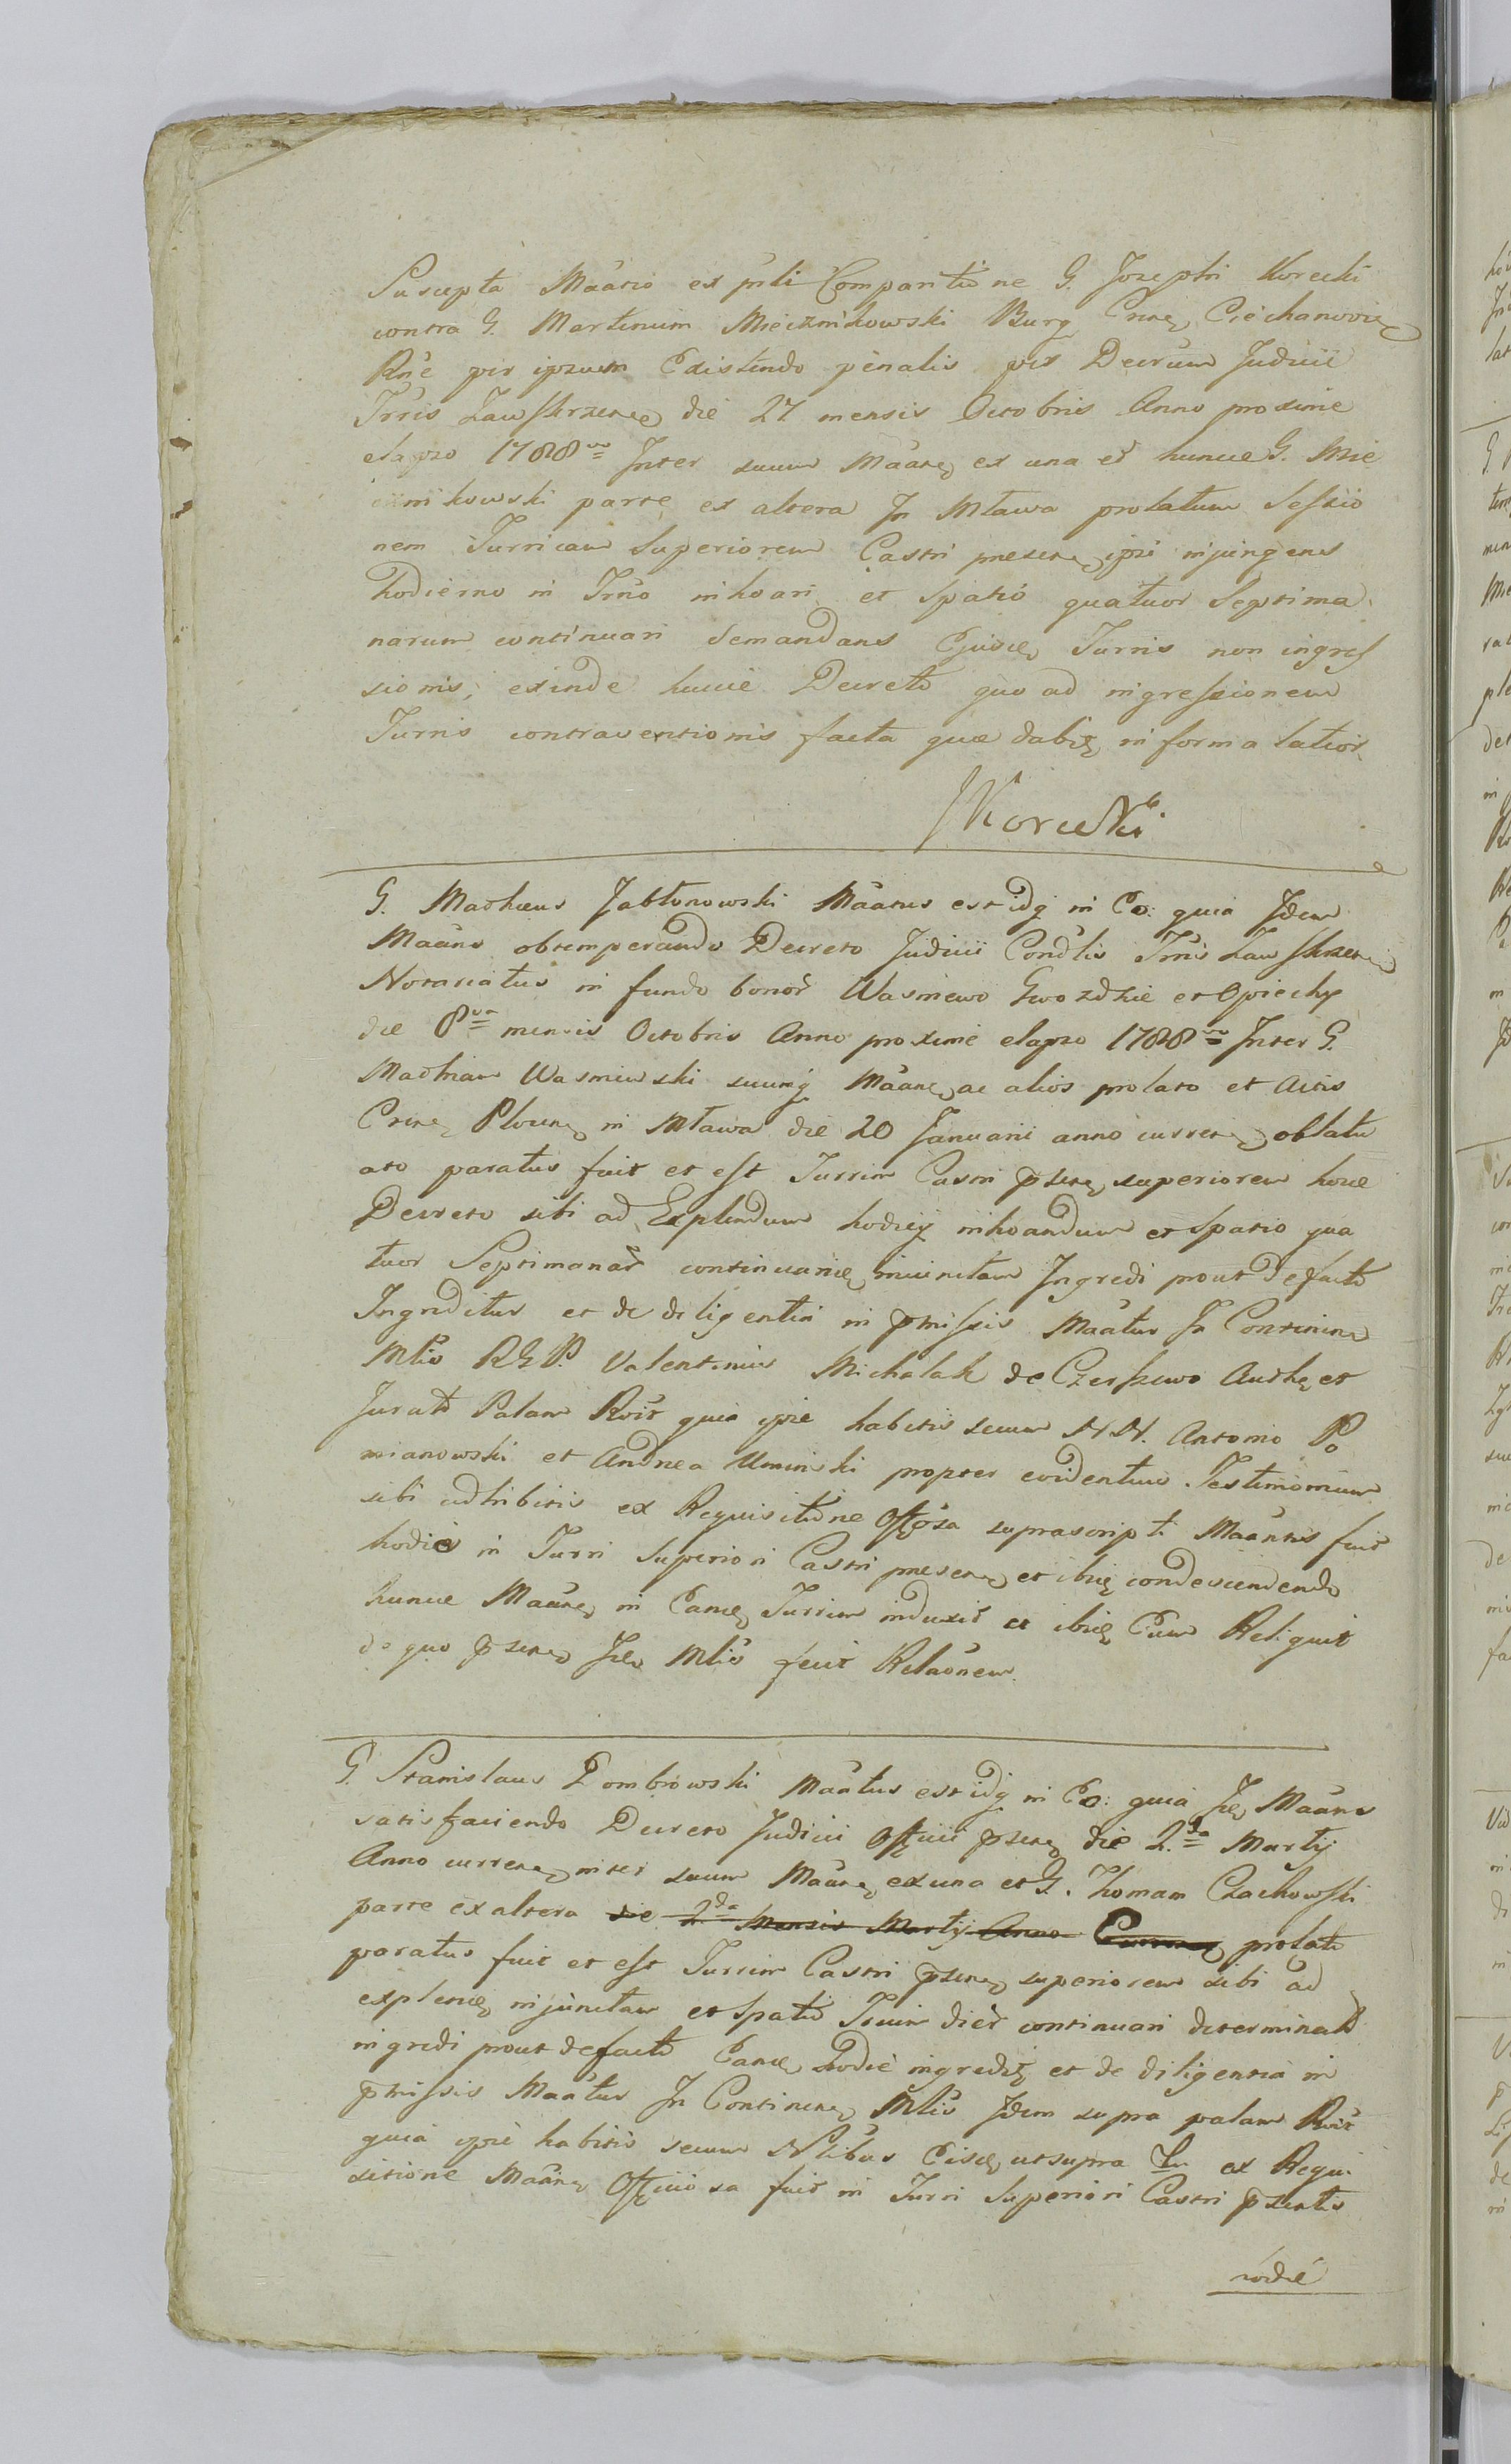 Suscepta Māātio ex pñli Comparitione G. Josephi Korecki
contra G. Martinum Miecznikowski Burg Cnen Ciechanovien
Rñe per ipsum Existendo penalis per Decrum Judicii
Trris Zawskrzen die 27 mensis Octobris Anno proxime
elapso 1788vo Inter suum Māāren ex una et hunce G. Mie
cznikowski parte ex altera In Mława prolatum Sessio
nem Turricam Superiorem Castri presen ipsi injungens
hodierno in Trño inhoari et Spatio quatuor Septima
narum continuari demandans Ejusd Turris non ingres
sionis, exinde huice Decreto quo ad ingressionem
Turris contraventionis facta quæ dabit in forma latior
JKorecki
G. Mathæus Jabłonowski Māātus est idq in Eo: quia Idem
Māāns obtemperando Decreto Judicii Condlis Trris Zawskrzen
Notariatus in fundo bonor Wasniewo Gwozdzie et Opiechy
die 8va mensis Octobris Anno proxime elapso 1788vo Inter G.
Mathiam Wasniewski suumq Māān ac alios prolato et Actis
Cnen Plocen in Mława die 20 Januarii anno curren oblatu
ato paratus fuit et est Turrim Castri psen superiorem hoce
Decreto sibi ad Explendum hodieq inhoandum et Spatio qua
tuor Septimanar continuand injunctam Ingredi prout de facto
Ingreditur et de diligentia in pmissis Māātus In Continen
Mlis R G P. Valentinus Michalak de Czerszewo Authen et
Jurato Palam Rvit quia ipse habitis secum NN. Antonio Po
mianowski et Andrea Uminski propter evidentius Testimonium
sibi adhibitis ex Requisitione Offosa suprascripti Māāntis fuit
hodie in Turri Superiori Castri presen et ibiq condescendendo
hunce Māān in Eand Turrim induxit et ibiq Eum Reliquit
de quo psen Id Mlis fecit Relāonem.
G. Stanislaus Dombrowski Māātus est idq in Eo: quia Id Māāns
satisfaciendo Decreto Judicii Officii psen die 2da Martij
Anno curren inter suum Māān ex una et G. Thomam Czachowski
parte ex altera die 2da Mensis Martij Anno Curren prolato
paratus fuit et est Turrim Castri psen superiorem sibi ad
explend injunctam et Spatio Trium dier continuari determinato
ingredi prout de facto Eand hodie ingredit et de diligentia in
pmissis Māātus In Continen Mlis Idem supra palam Rvit
quia ipse habitis secum Nlibus Eisd ut supra ex Requi
sitione Māān Officiosa fuit in Turri Superiori Castri psentis
hodie